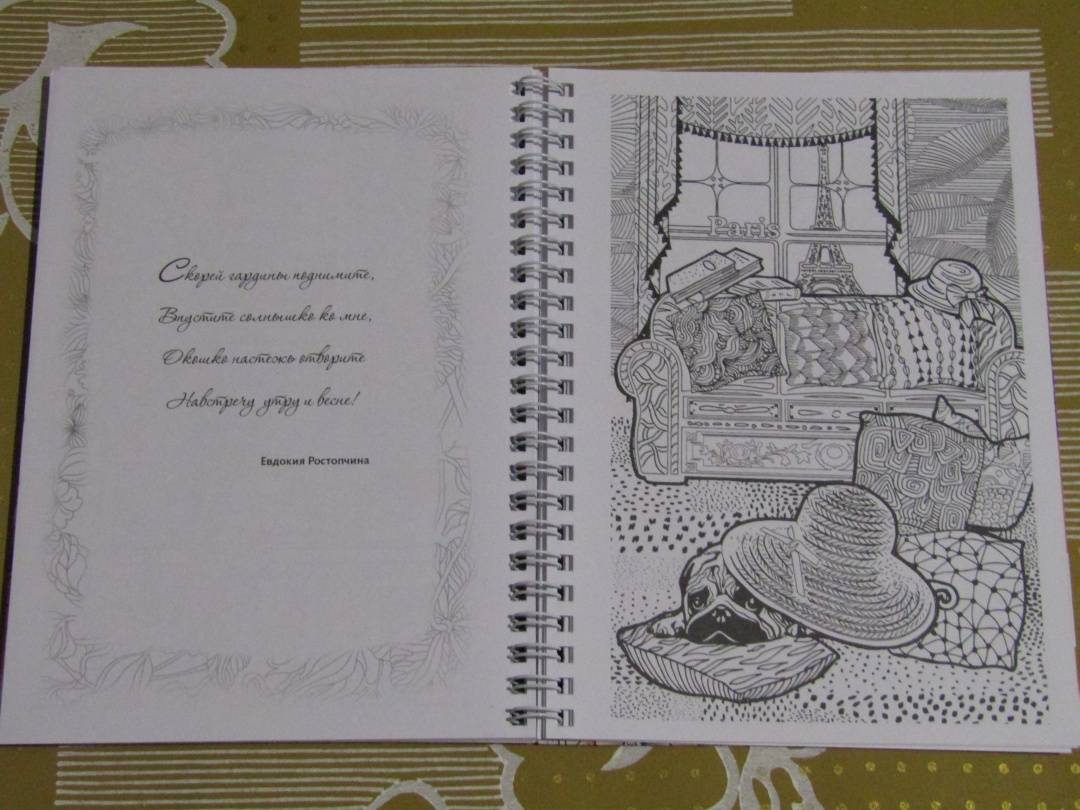 Скорей гардины поднимите,
Впустите солнышко ко мне,
Окошко настежь отворите
Навстречу утру и весне!
Евдокия Ростопчина
Paris